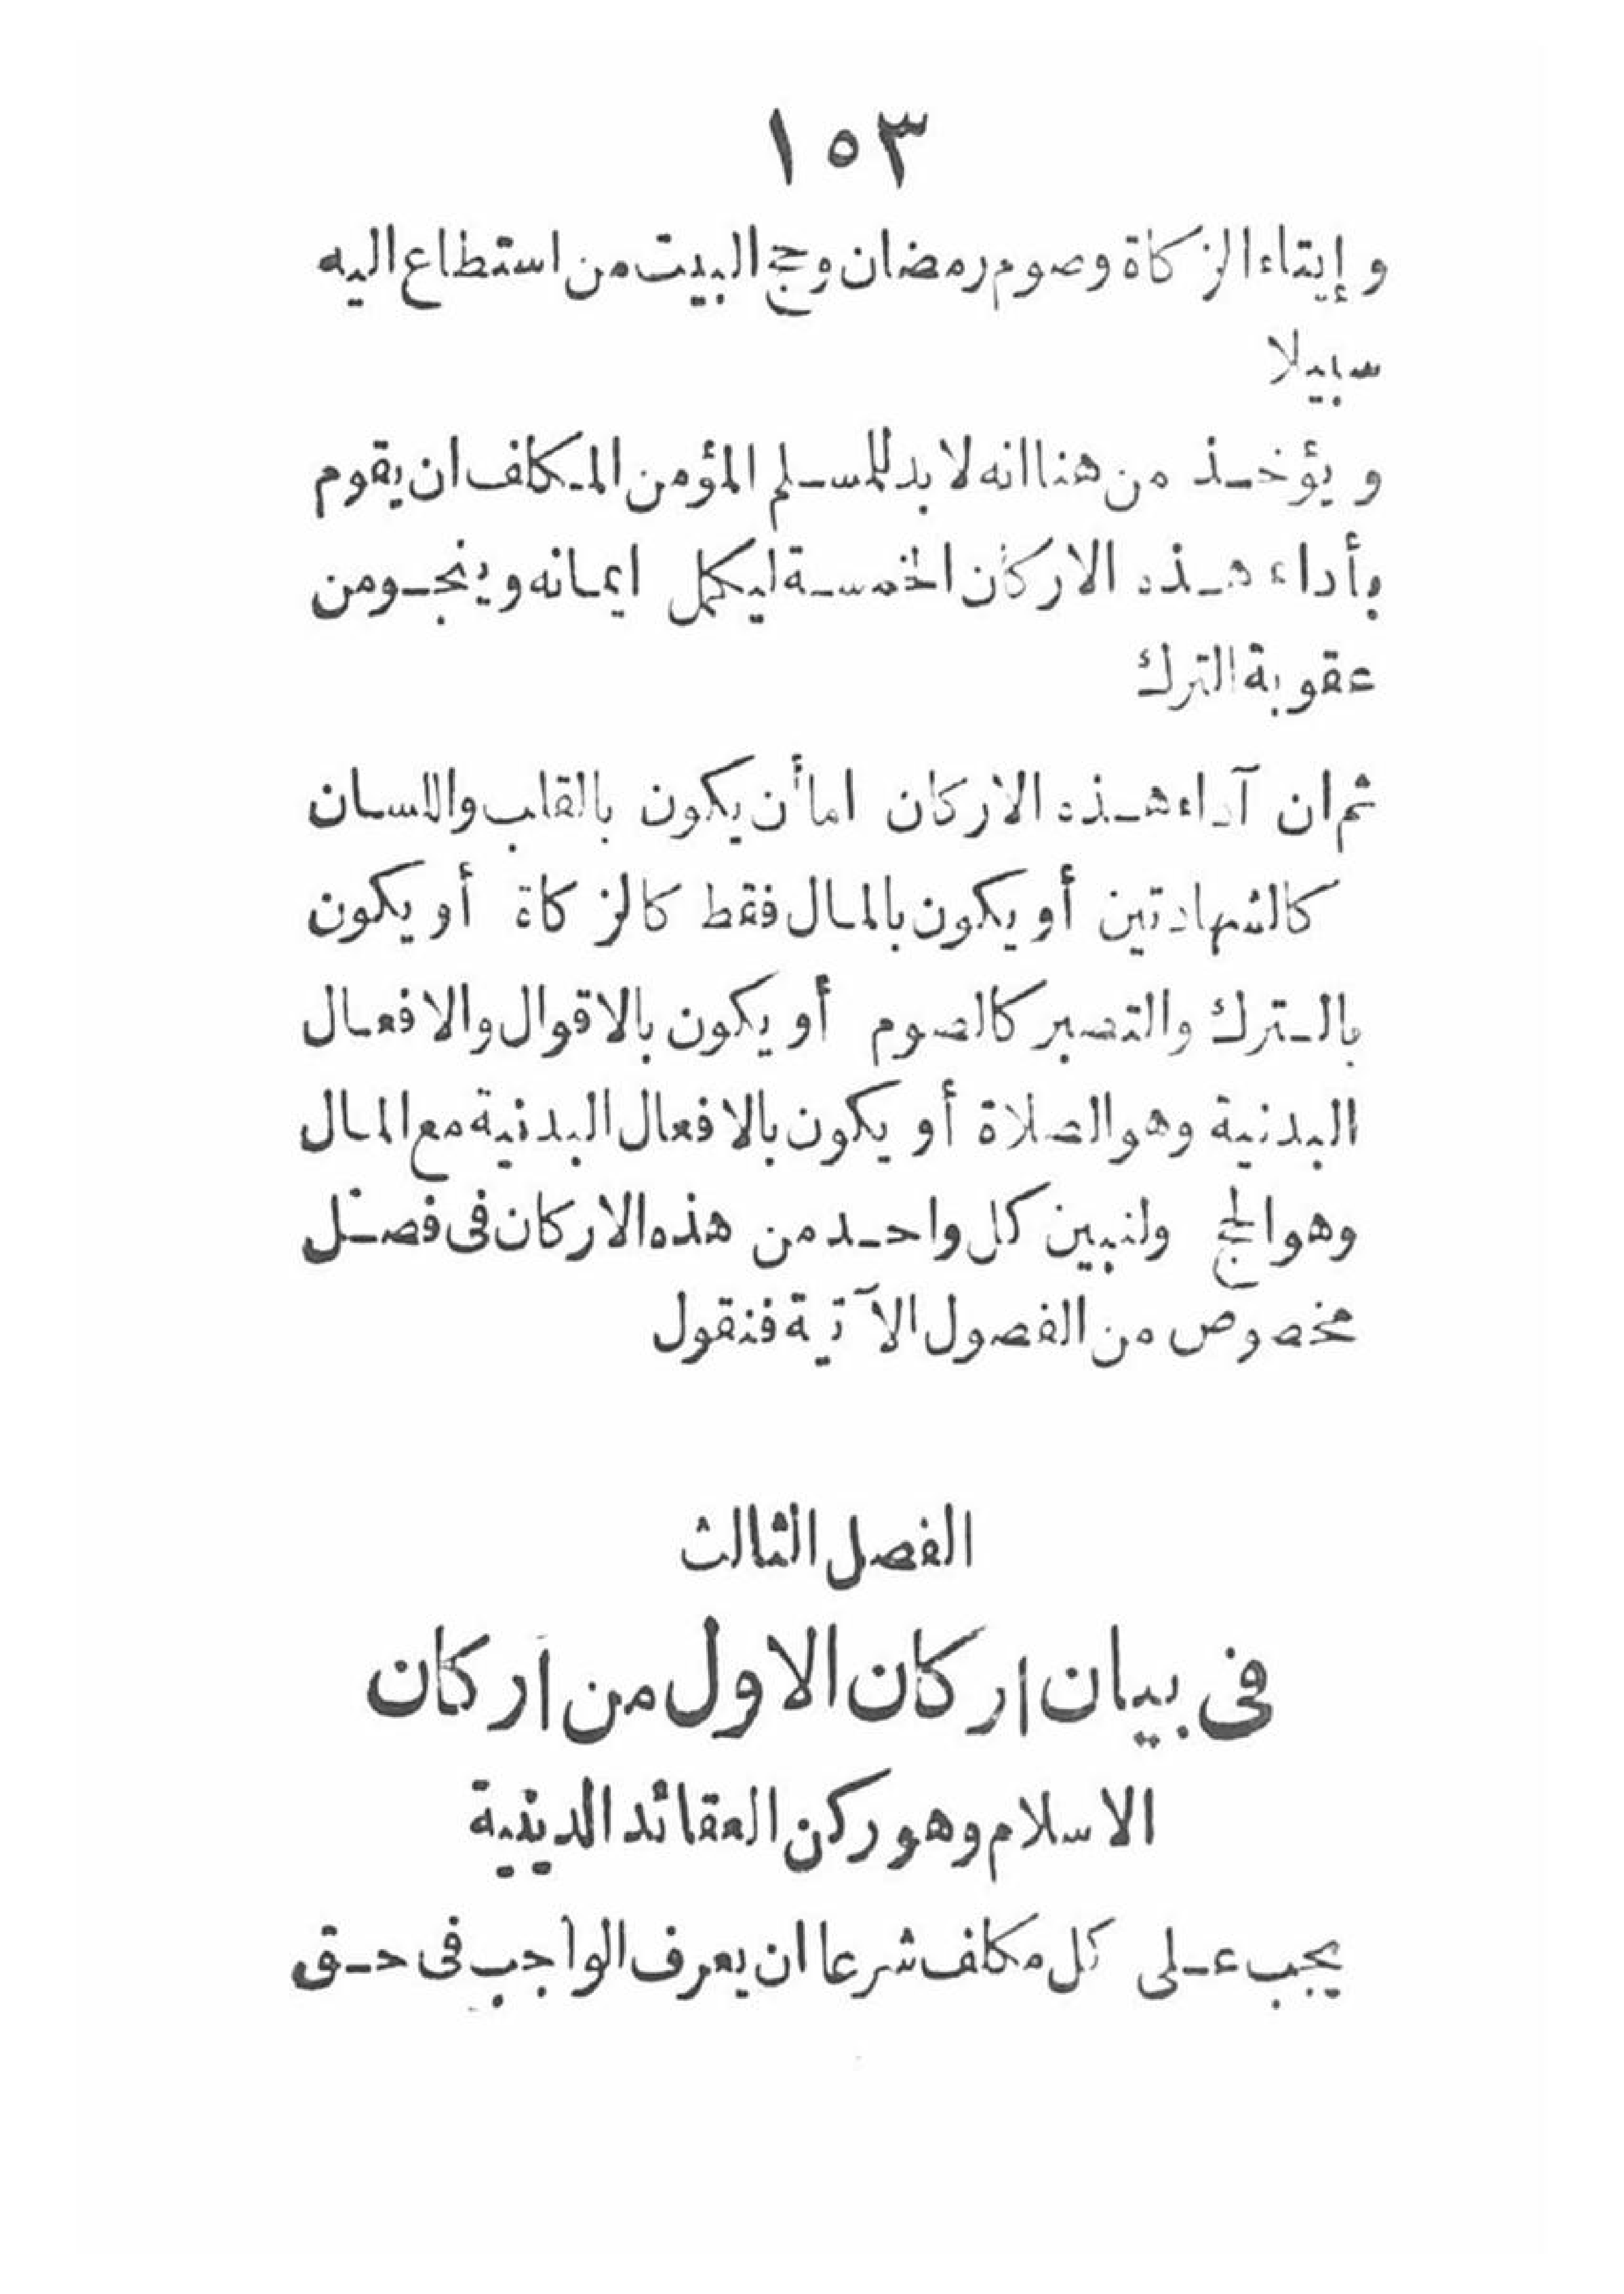 ١٥٣
و إيتاء الزكاة وصوم رمضان وحج البيت من استطاع اليه
سبيلا
و يؤخذ من هنا انه لا بد للمسلم المؤمن المكلف ان يقوم
بأداء هذه الاركان الخمسة ليكمل ايمانه وينجو من
عقوبة الترك
ثم ان آداء هذه الاركان اما أن يكون بالقلب واللسان
كالشهادتين أو يكون بالمال فقط كالزكاة أو يكون
بالترك والتصبر كالصوم أو يكون بالاقوال والافعال
البدنية وهو الصلاة أو يكون بالافعال البدنية مع المال
وهو الحج ولنبين كل واحد من هذه الاركان فى فصل
مخصوص من الفصول الآتية فنقول
الفصل الثالث
فى بيان اركان الاول من اركان
الاسلام وهو ركن العقائد الدينية
يجب على كل مكلف شرعا ان يعرف الواجب فى حق